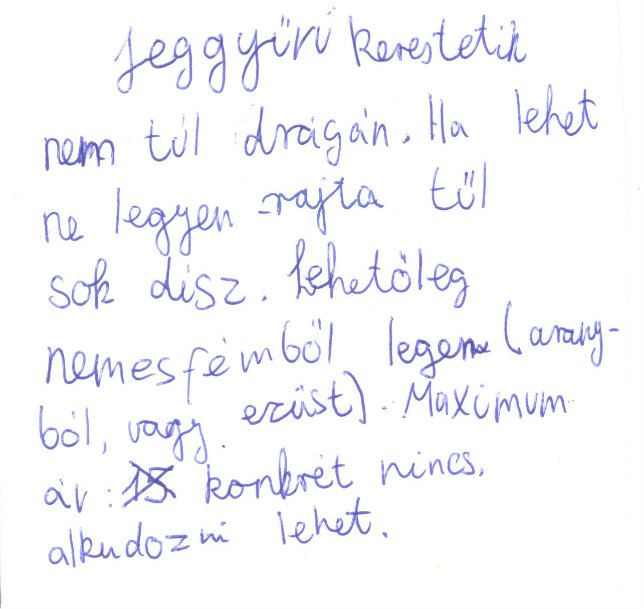 Jeggyűrű kerestetik
nem túl drágán. Ha lehet
ne legyen rajta túl
sok dísz. Lehetőleg
nemesfémből legen (arany-
ból, vagy ezüst). Maximum
ár: 15 konkrét nincs.
alkudozni lehet.